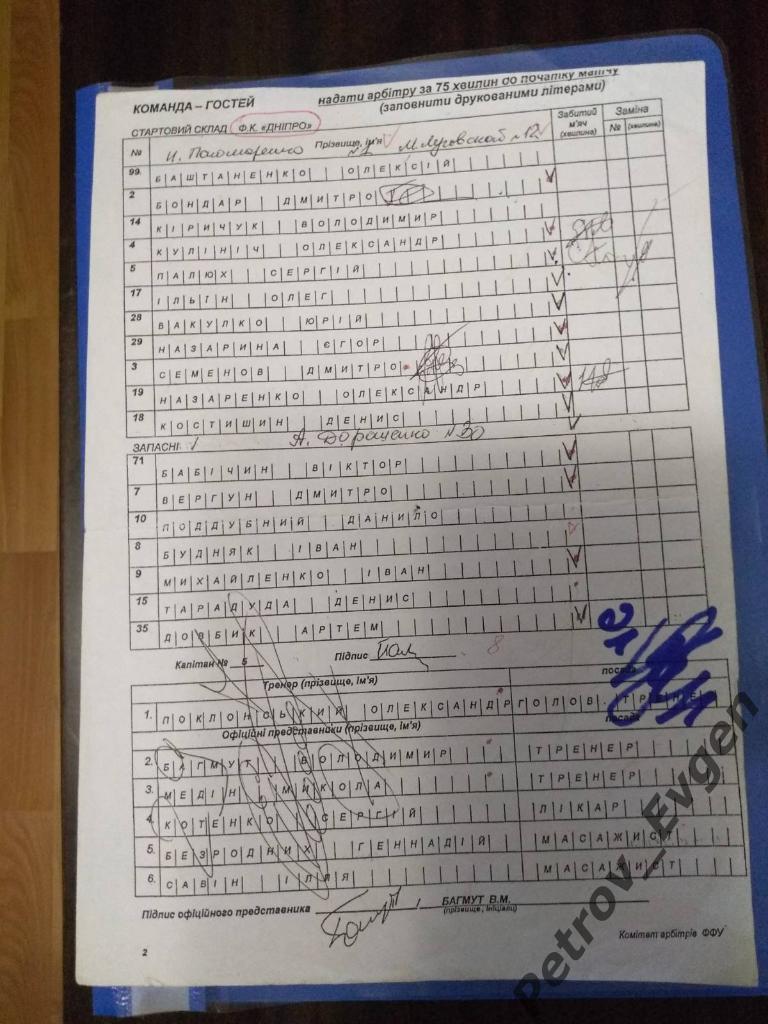 КОМАНДА – ГОСТЕЙ
надати арбітру за 75 хвилин до початку матчу
(заповнити друкованими літерами)
СТАРТОВИЙ СКЛАД Ф.К. «ДНІПРО»
№ Прізвище, ім'я Забитий м'яч (хвилина) Заміна № (хвилина)
И. Пономаренко №1 М. Луговской №12
99. БАШТАНЕНКО ОЛЕКСІЙ
2 БОНДАР ДМИТРО
14 КІРИЧУК ВОЛОДИМИР
4 КУЛІНІЧ ОЛЕКСАНДР
5 ПАЛЮХ СЕРГІЙ
17 ІЛЬЇН ОЛЕГ
28 ВАКУЛКО ЮРІЙ
29 НАЗАРИНА ЄГОР
3 СЕМЕНОВ ДМИТРО
19 НАЗАРЕНКО ОЛЕКСАНДР
18 КОСТИШИН ДЕНИС
ЗАПАСНІ А. №30
71 БАБІЧИН ВІКТОР
7 ВЕРГУН ДМИТРО
10 ПОДДУБНИЙ ДАНИЛО
8 БУДНЯК ІВАН
9 МИХАЙЛЕНКО ІВАН
15 ТАРАДУДА ДЕНИС
35 ДОВБИК АРТЕМ
Капітан № 5 Підпис 8
Тренер (прізвище, ім'я) посада
1. ПОКЛОНСЬКИЙ ОЛЕКСАНДР ГОЛОВ. ТРЕНЕР
Офіційні представники (прізвище, ім'я) посада
2. БАГМУТ ВОЛОДИМИР ТРЕНЕР
3. МЕДІН МИКОЛА ТРЕНЕР
4. КОТЕНКО СЕРГІЙ ЛІКАР
5. БЕЗРОДНИХ ГЕННАДІЙ МАСАЖИСТ
6. САВІН ІЛЛЯ МАСАЖИСТ
Підпис офіційного представника / БАГМУТ В.М.
(прізвище, ініціали)
Комітет арбітрів ФФУ
2
Petrov_Evgen